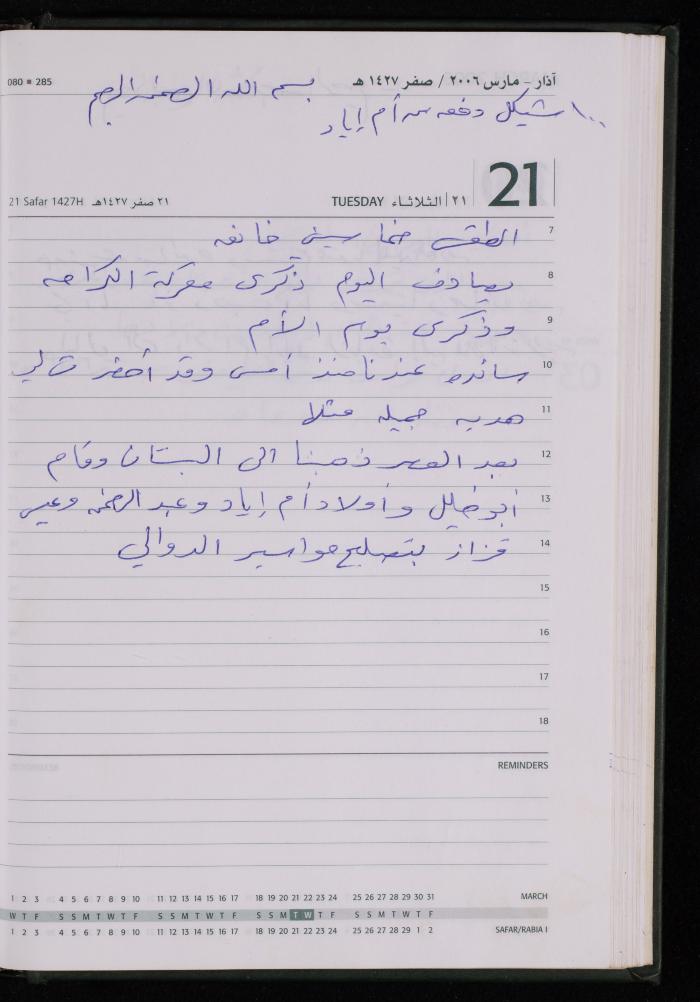 080 ▪ 285
آذار - مارس ٢٠٠٦ / صفر ١٤٢٧ هـ
بسم الله الرحمن الرحيم
١٠٠ شيكل دفعه من أم إياد
21 Safar 1427H ٢١ صفر ١٤٢٧هـ TUESDAY ٢١ الثلاثاء 21
7 الطقس خماسيني خانقه
8 يصادف اليوم ذكرى معركة الكرامه
9 وذكرى يوم الأم
10 سائده عندنا منذ أمس وقد أحضرت لي
11 هديه جميله مثلا
12 بعد العصر ذهبنا الى البستان وقام
13 أبو خليل وأولاد أم إياد وعبد الرحمن وعيسى
14 قزاز بتصليح مواسير الدوالي
15
16
17
18
REMINDERS
1 2 3 4 5 6 7 8 9 10 11 12 13 14 15 16 17 18 19 20 21 22 23 24 25 26 27 28 29 30 31 MARCH
W T F S S M T W T F S S M T W T F S S M T W T F S S M T W T F
1 2 3 4 5 6 7 8 9 10 11 12 13 14 15 16 17 18 19 20 21 22 23 24 25 26 27 28 29 1 2 SAFAR/RABIA I